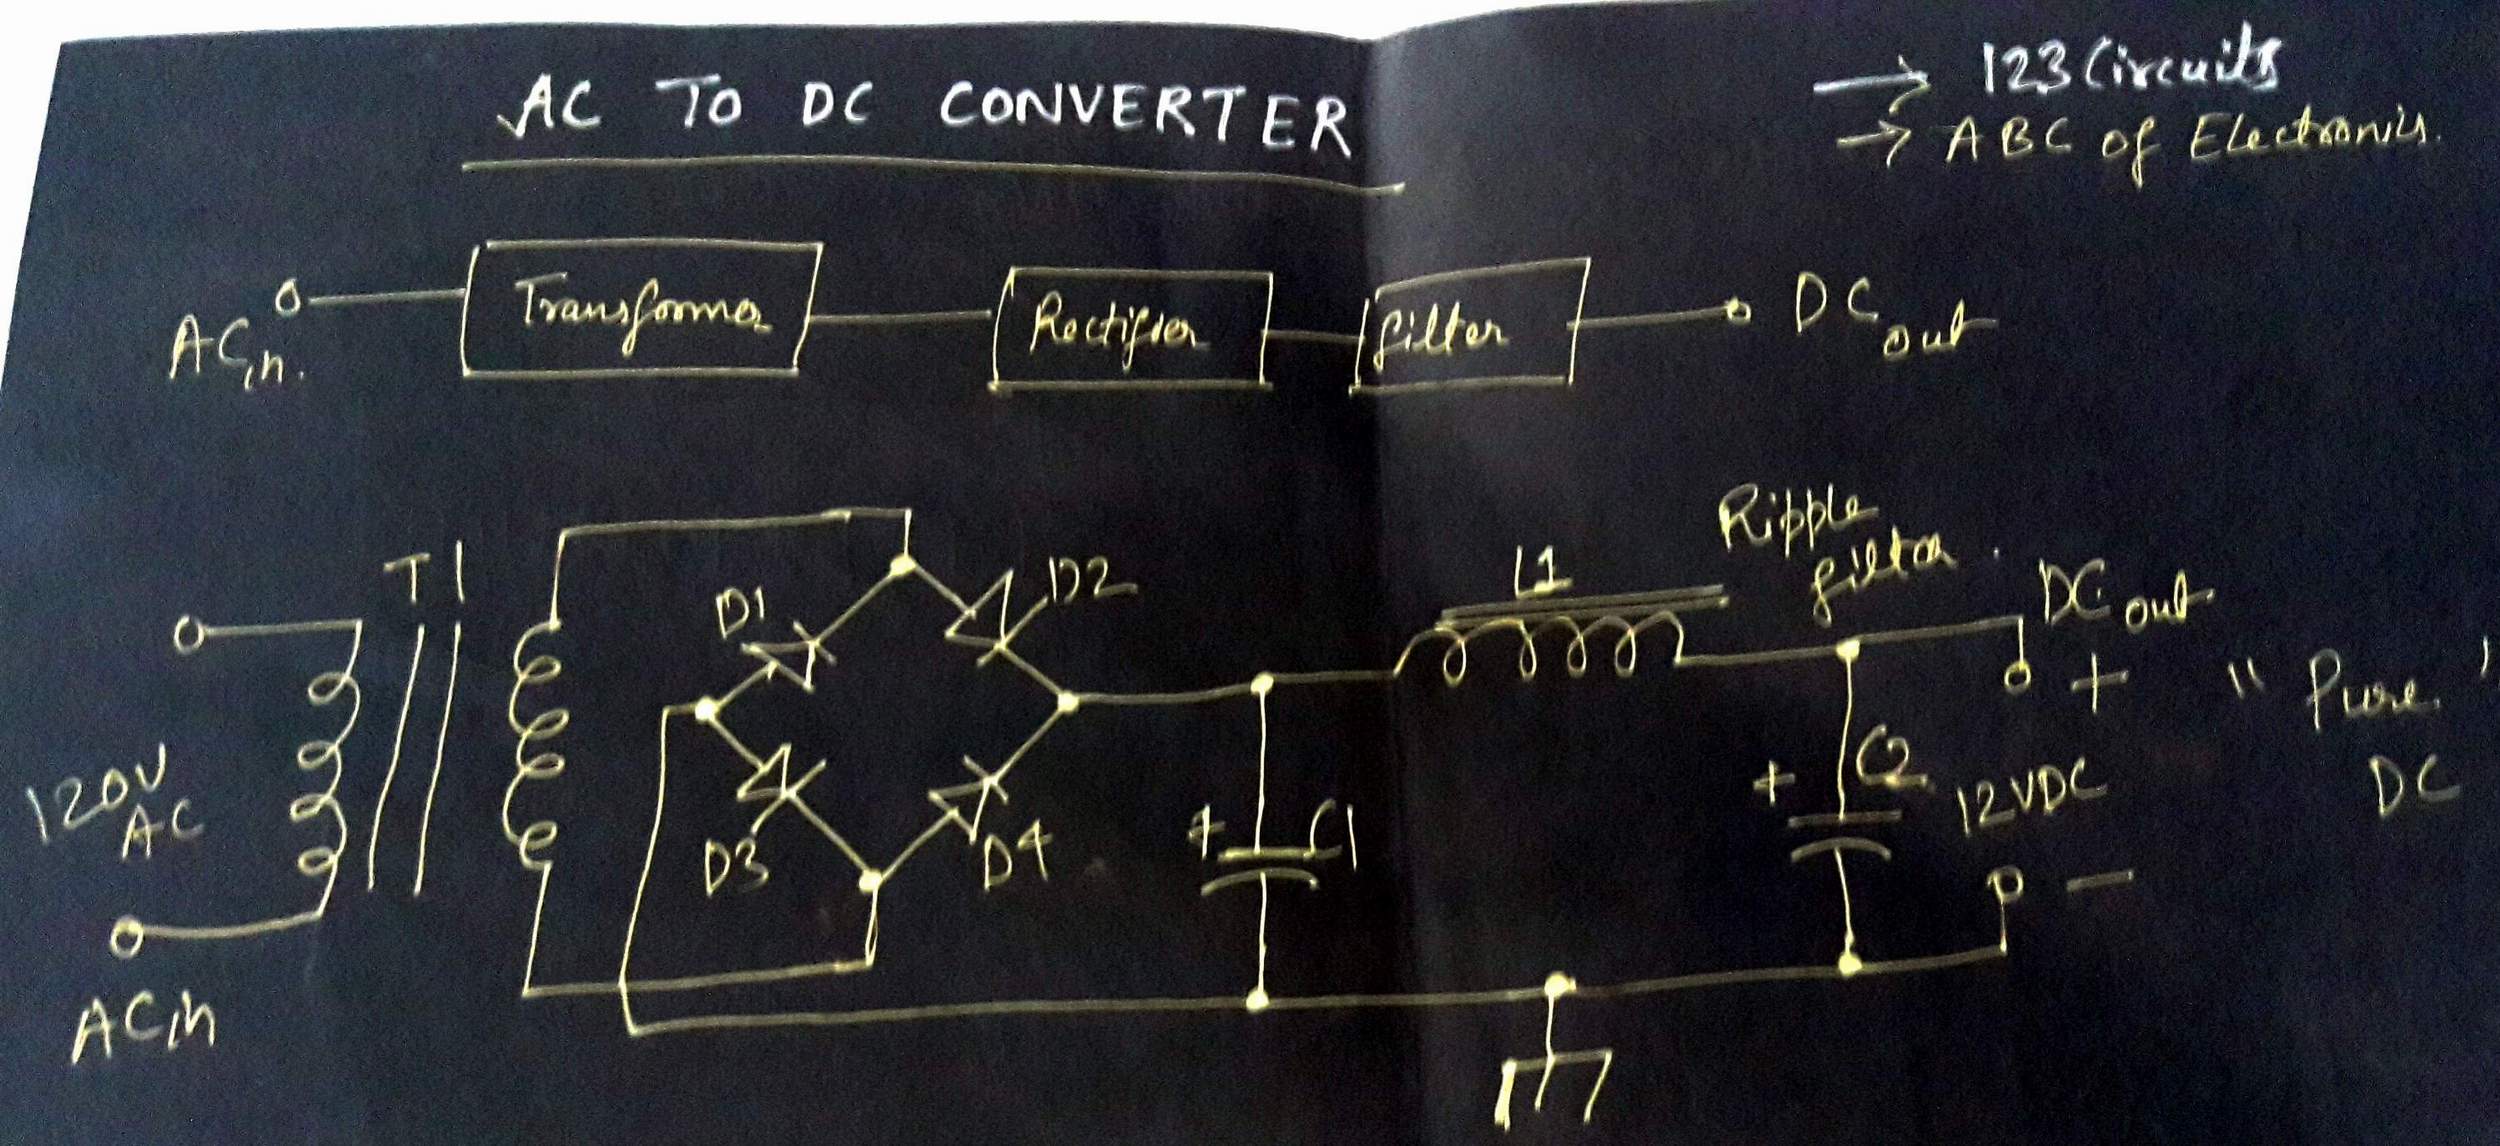 AC TO DC CONVERTER
→ 123 Circuits
→ ABC of Electronics.
ACin.
Transformer
Rectifier
filter
DC out
T1
120V
AC
ACin
D1
D2
D3
D4
C1
L1
Ripple
filter.
DC out
+
"Pure"
DC
+
C2
12VDC
−
+